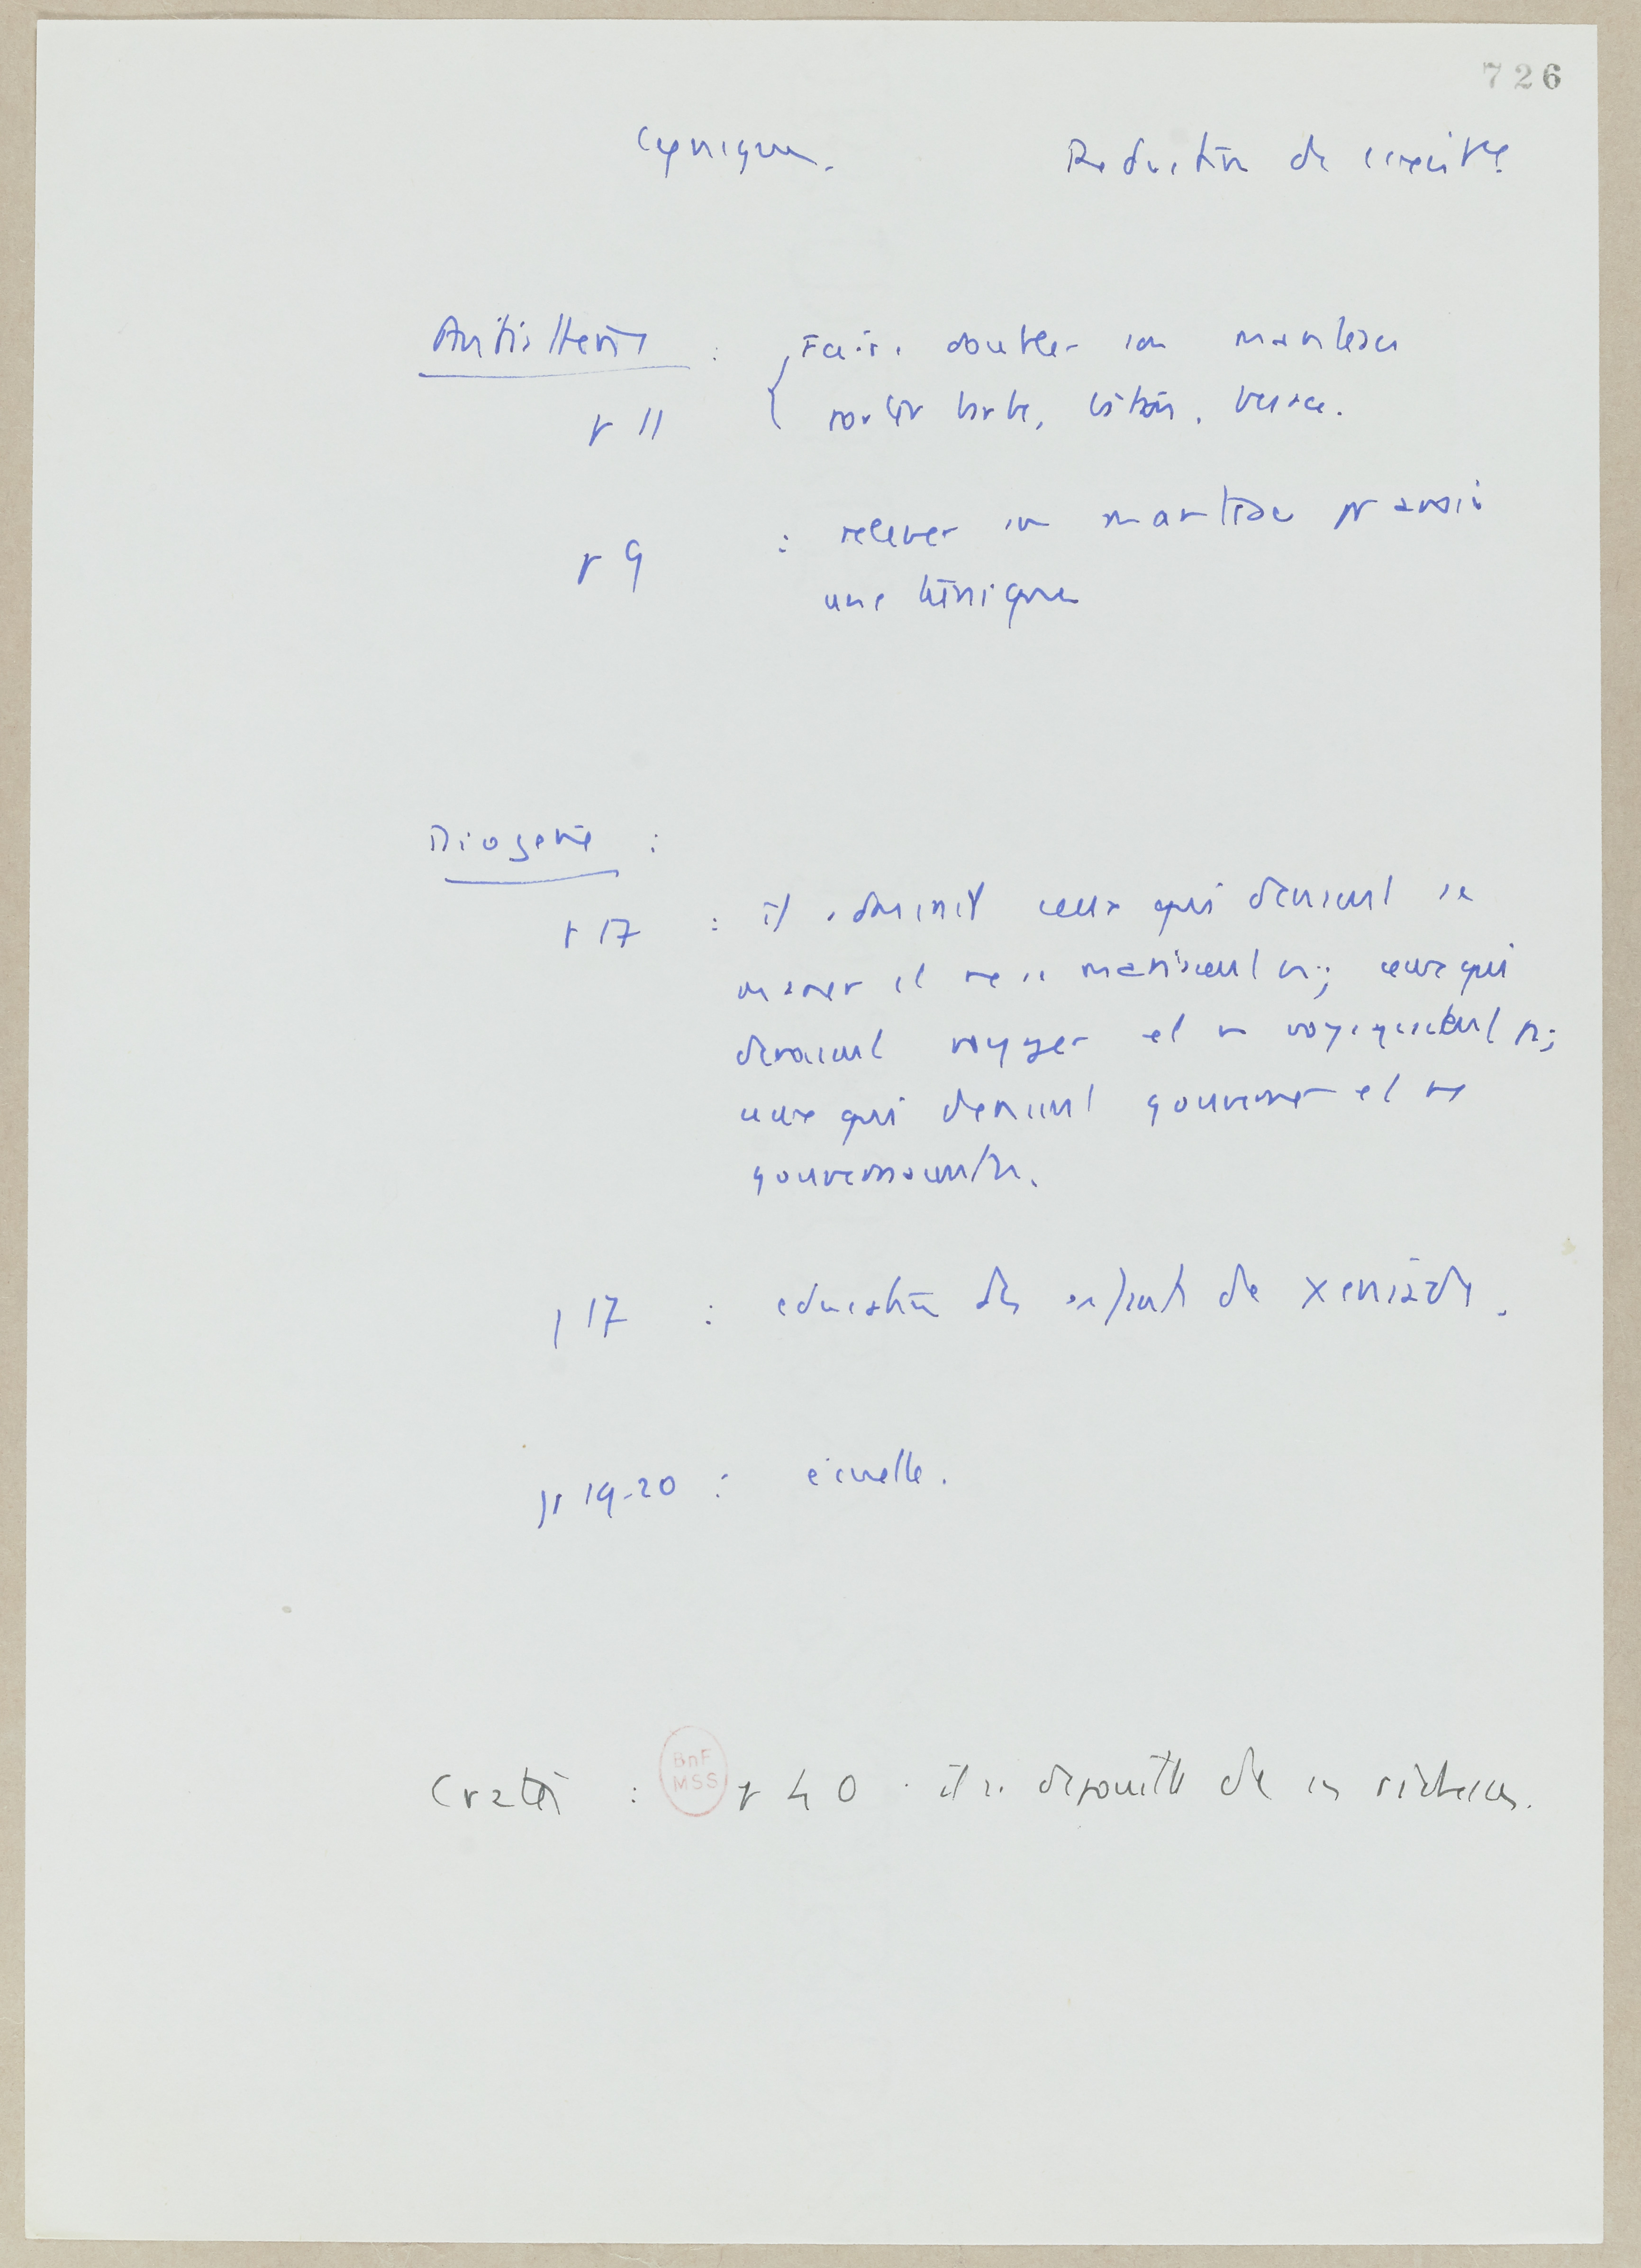 726
Cyniques. Réduction de
Antisthène : Faire doubler son manteau
p 11 porter barbe, bâton, besace.
p 9 : relever son manteau pr avoir
une tunique
Diogène :
p 17 : il admirait ceux qui devaient se
marier et ne se mariaient pas; ceux qui
devaient voyager et ne voyageaient pas;
ceux qui devaient gouverner et ne
gouvernaient pas.
p 17 : education des enfants de Xeniade.
pp 19-20 : écuelle.
Cratès : BnF MSS p 40 . il se dépouille de ses richesses.